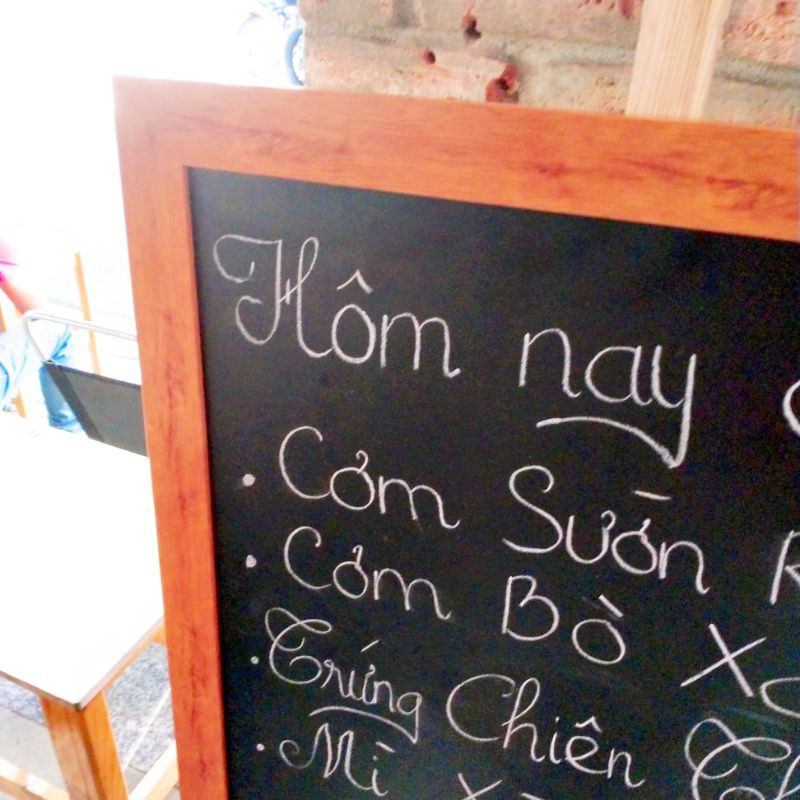 Hôm nay
• Cơm Sườn
• Cơm Bò
• Trứng Chiên
• Mì